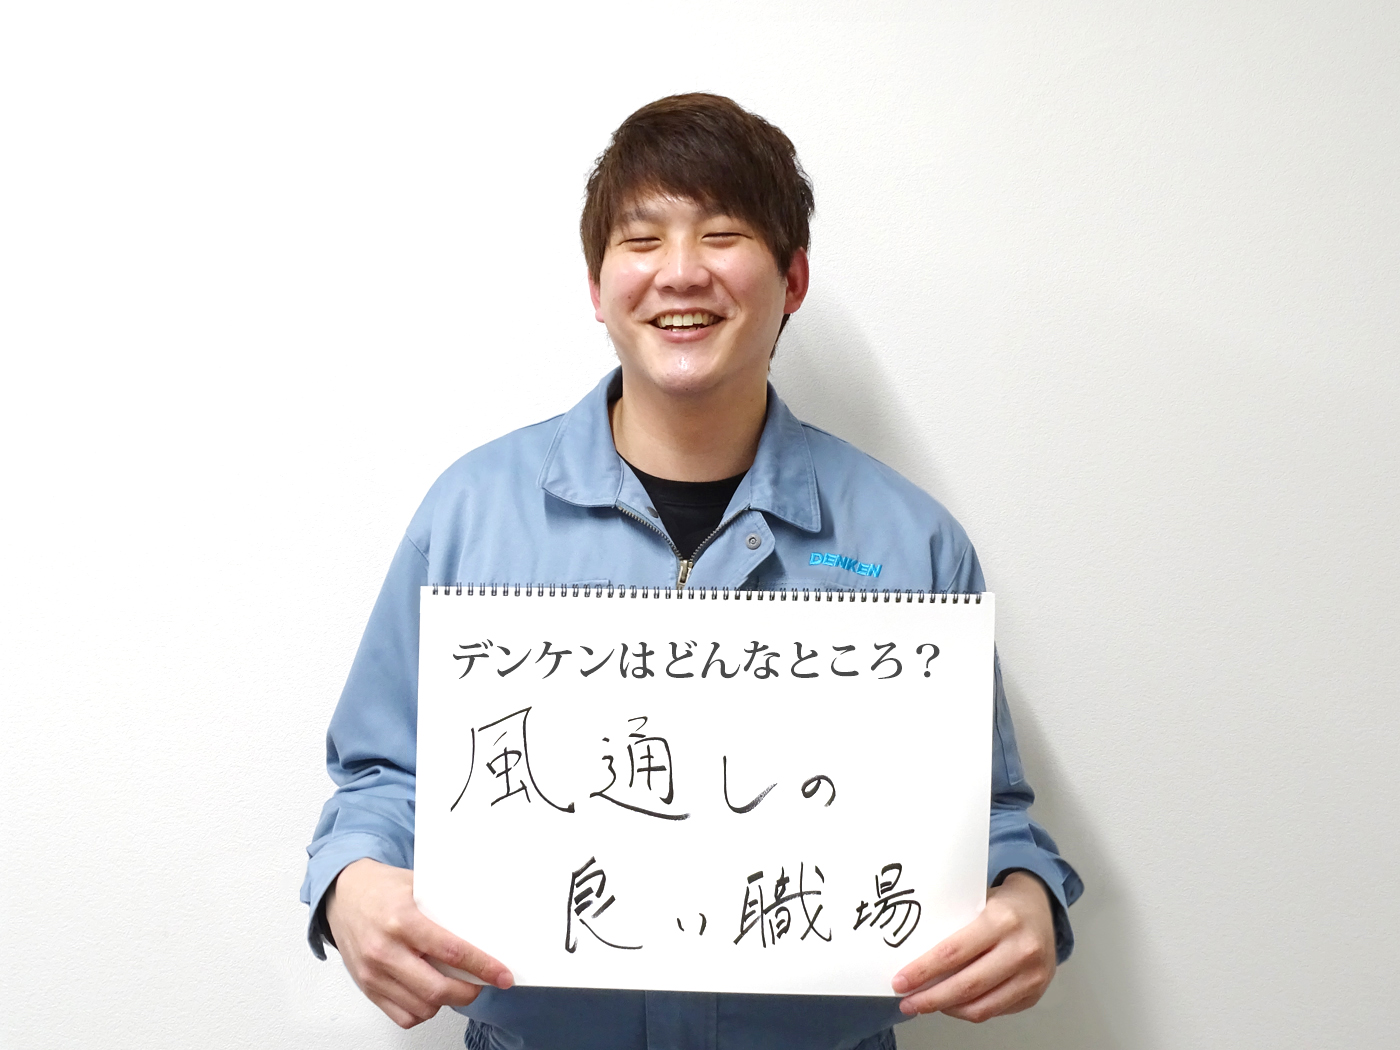 DENKEN
デンケンはどんなところ？
風通しの
良い職場